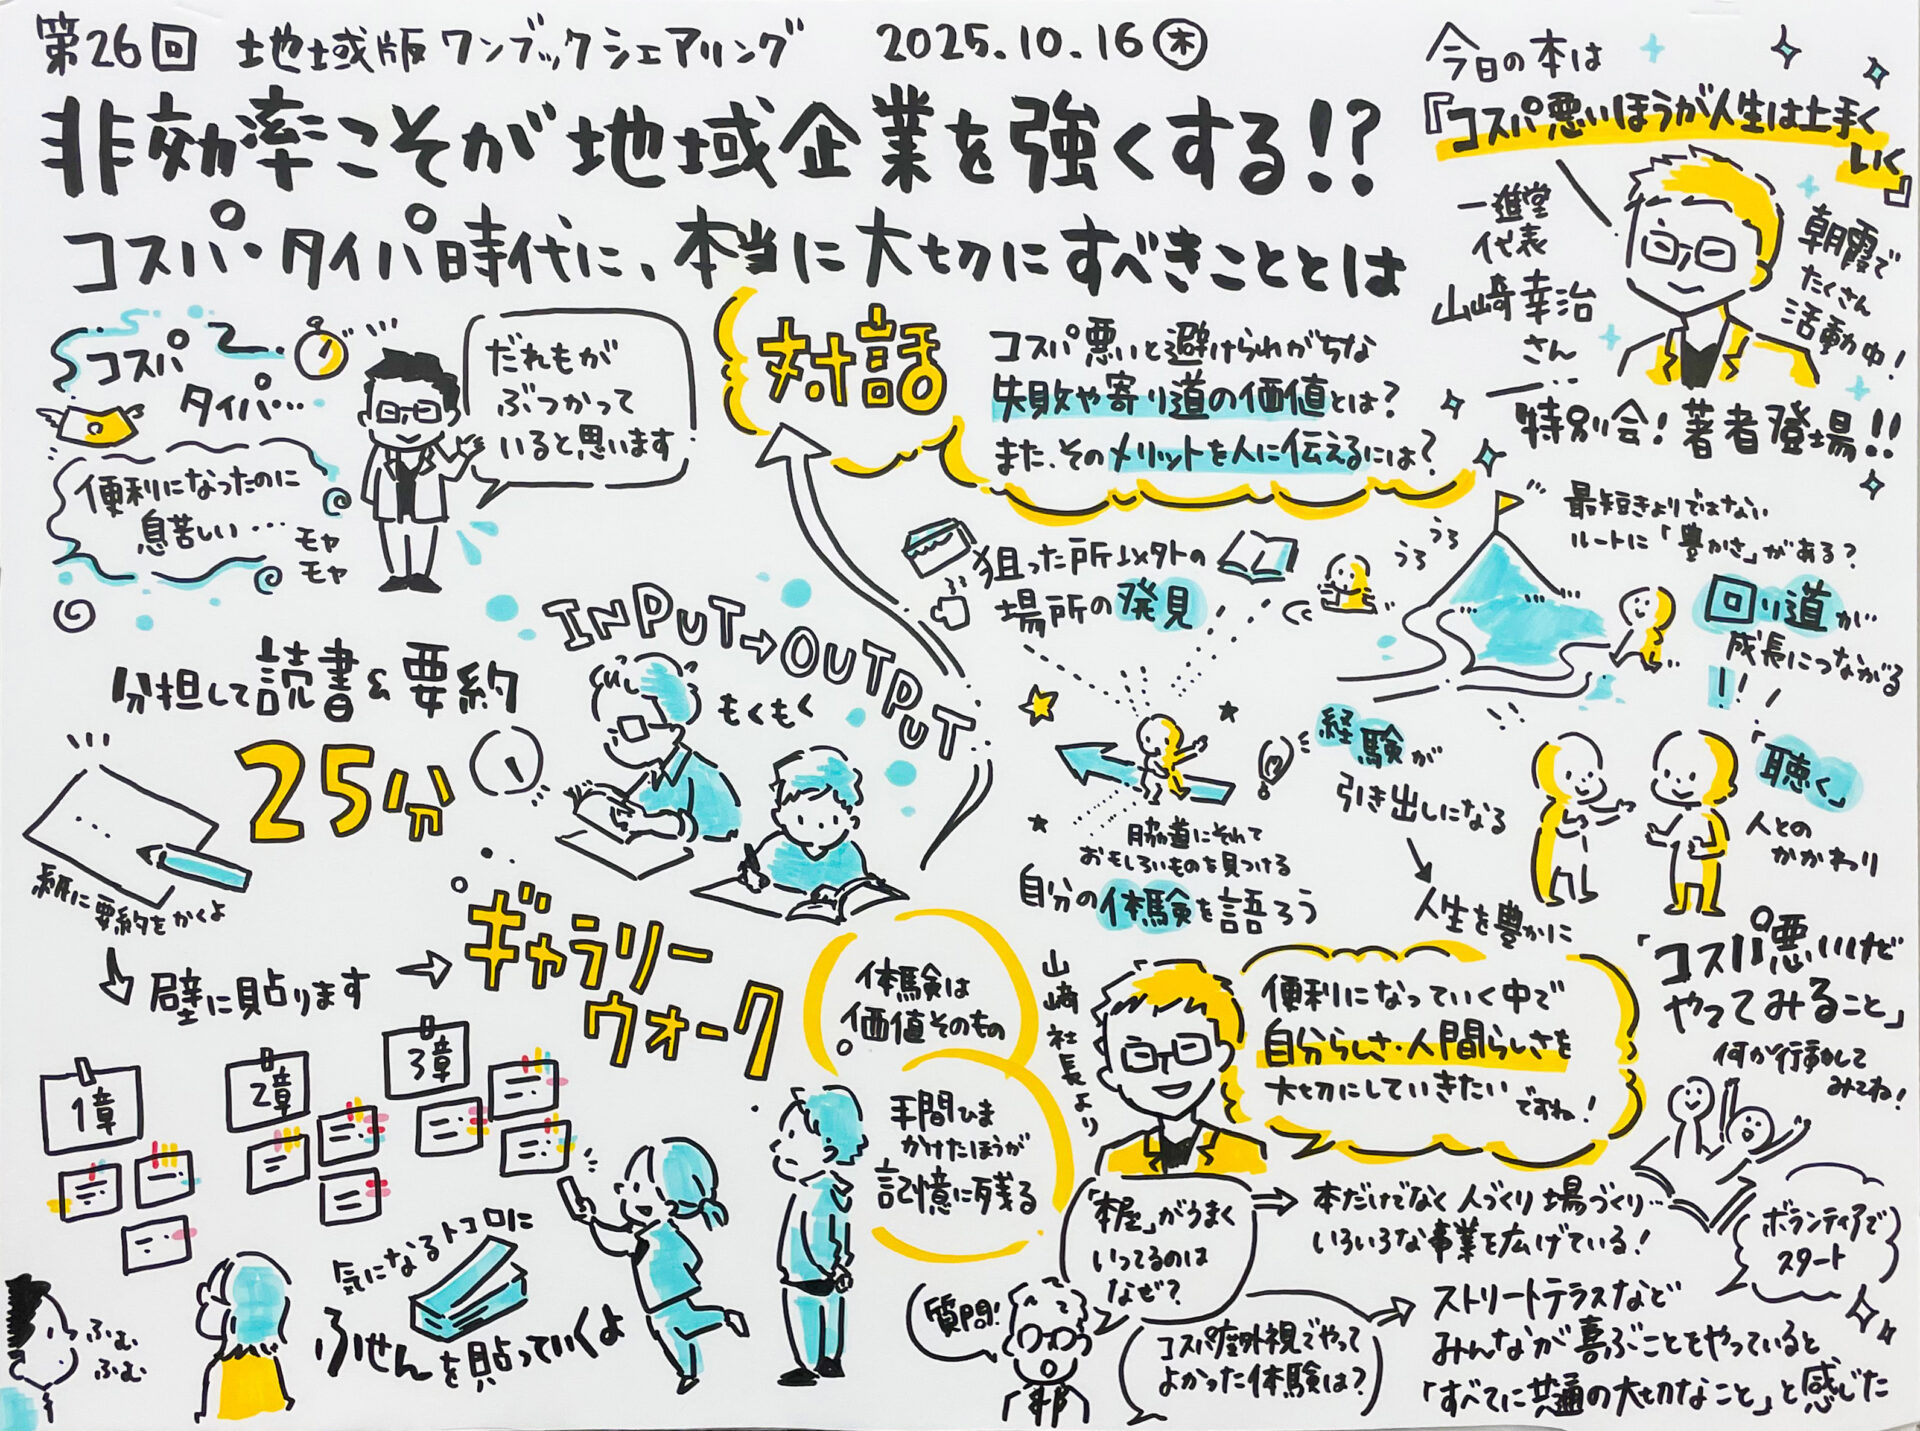 第26回 地域版ワンブックシェアリング 2025.10.16㊍
非効率こそが地域企業を強くする!?
コスパ・タイパ時代に、本当に大切にすべきこととは
今日の本は
『コスパ悪いほうが人生は上手く
いく』
一進堂
代表
山﨑幸治
さん
朝霞で
たくさん
活動中!
特別会!著者登場!!
コスパ
タイパ…
便利になったのに
息苦しい…
モヤ
モヤ
だれもが
ぶつかって
いると思います
対話
コスパ悪いと避けられがちな
失敗や寄り道の価値とは?
また、そのメリットを人に伝えるには?
分担して読書&要約
25分
INPUT→OUTPUT
もくもく
紙に要約をかくよ
壁に貼ります
ギャラリー
ウォーク
1章
2章
3章
気になるトコロに
ふせんを貼っていくよ
ふむ
ふむ
狙った所以外の
場所の発見
うろ
うろ
最短きょりではない
ルートに「豊かさ」がある?
回り道が
成長につながる
!!
脇道にそれて
おもしろいものを見つける
自分の体験を語ろう
経験が
引き出しになる
人生を豊かに
「聴く」
人との
かかわり
体験は
価値そのもの
手間ひま
かけたほうが
記憶に残る
山﨑社長より
便利になっていく中で
自分らしさ・人間らしさを
大切にしていきたい
ですね!
「コスパ悪いけど
やってみること」
何か行動して
みてね!
質問!
「本屋」がうまく
いってるのは
なぜ?
本だけでなく人づくり場づくり…
いろいろな事業を広げている!
ボランティアで
スタート
コスパ度外視でやって
よかった体験は?
ストリートテラスなど
みんなが喜ぶことをやっていると
「すべてに共通の大切なこと」と感じた